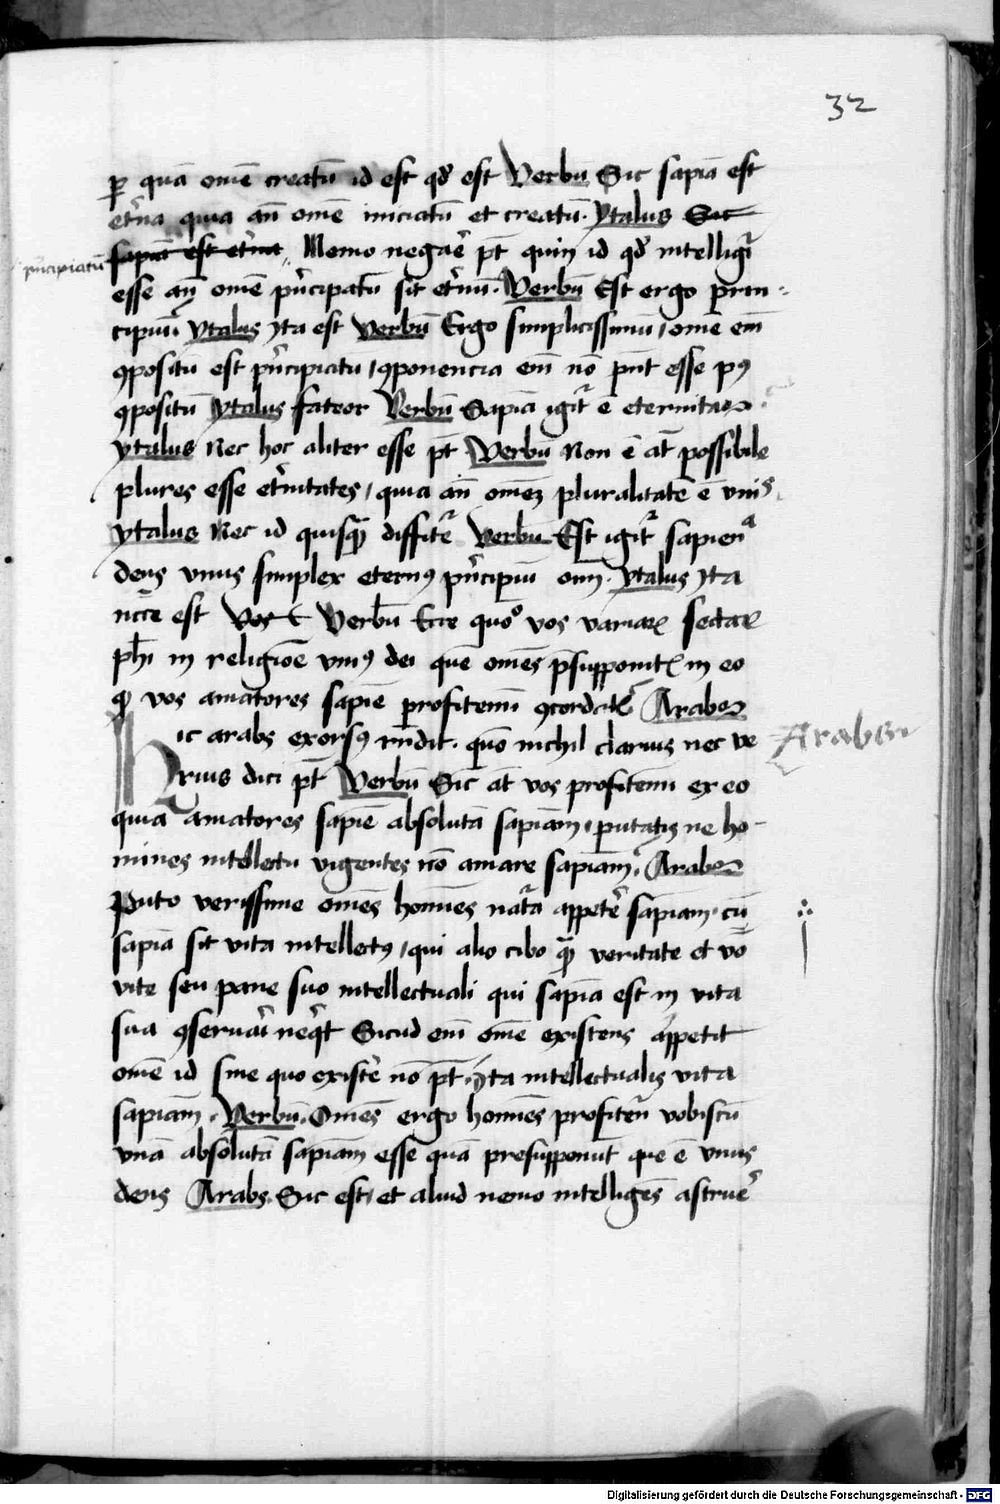 32
p quā om̄e creatū id est qd est Verbū Sic sapīa est
et'na quia an̄ om̄e iniciatū et creatū. ytalus Sic
sapiā est et'na, Nemo negar̄ pt̄ quin id qd intelligi
pn̄cipiatū
esse an̄ om̄e pn̄cipatū sit et'nū. Verbū Est ergo prin
cipiū ytalus yta est verbū Ergo simplicissimū, om̄e em̄
ꝯpositū est pn̄cipiatū, ꝯponencia em̄ nō pn̄t esse pꝰ
ꝯpositū ytalus fateor Verbū Sapīa igit' ē eternitas.
ytalus Nec hoc aliter esse pt̄ Verbū Non ē at̄ possibile
plures esse et'nitates, quia an̄ om̄eꝫ pluralitatē ē vnitꝰ
ytalus Nec id quisꝗ̄ diffitet' Verbū Est igit' sapienᵃ
deus vnus simplex eternꝰ pn̄cipiū oīm. ytalus yta
ncc̄e est Vos t Verbū Ecce quōº vos variaꝝ sectaꝝ
ph̄i in religiōe vniꝰ dei quē om̄es p̄supponitꝭ in eo
ꝙ vos amatores sapīe profitemī ꝯcordatꝭ Arabs
Hic arabs exorsꝰ rn̄dit. quōº nichil clarius nec ve
Arabs
rius dici pt̄ Verbū Sic at̄ vos profitemī ex eo
quia amatores sapīe absolutā sapīam, putatis ne ho
mines intellectu vigentes nō amare sapīam. Arabs
Puto verissime om̄es hom̄ies nat'a appete' sapiam. cū
sapīa sit vita intellectꝰ, qui alio cibo ꝗ̄ veritate et vbō
vite seu pane suo intellectuali qui sapīa est in vita
sua ꝯseruari neꝗt Sicud em̄ om̄e existens appetit
om̄e id sine quo existe' nō pt̄, yta intellectualis vita
sapīam. Verbū. Om̄es ergo hom̄ies profitēt' vobiscū
vnā absolutā sapīam esse quā presupponūt que ē vnus
deus Arabs Sic est, et aliud nemo intelligēs astrue'
Digitalisierung gefördert durch die Deutsche Forschungsgemeinschaft - DFG